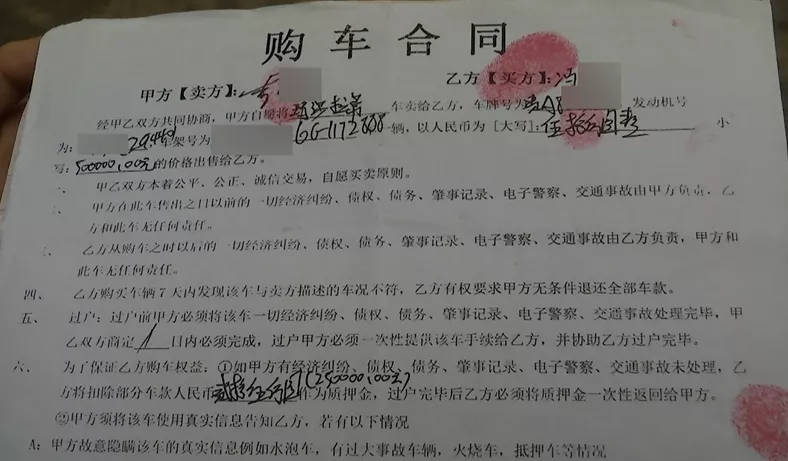 购车合同
甲方【卖方】: 乙方【买方】:冯
经甲乙双方共同协商,甲方自愿将 车卖给乙方,车牌号为 发动机号
为: 车架号为 GG1172888一辆,以人民币为[大写]: 小
写:500000,00元的价格出售给乙方。
一、 甲乙双方本着公平、公正、诚信交易,自愿买卖原则。
甲方在此车售出之日以前的一切经济纠纷、债权、债务、肇事记录、电子警察、交通事故由甲方负责,乙
方和此车无任何责任。
乙方从购车之时以后的一切经济纠纷、债权、债务、肇事记录、电子警察、交通事故由乙方负责,甲方和
此车无任何责任。
四、 乙方购买车辆7天内发现该车与卖方描述的车况不符,乙方有权要求甲方无条件退还全部车款。
五、 过户:过户前甲方必须将该车一切经济纠纷、债权、债务、肇事记录、电子警察、交通事故处理完毕,甲
乙双方商定1日内必须完成,过户甲方必须一次性提供该车手续给乙方,并协助乙方过户完毕。
六、 为了保证乙方购车权益:①如甲方有经济纠纷、债权、债务、肇事记录、电子警察、交通事故未处理,乙
方将扣除部分车款人民币 (250000,00元)作为质押金,过户完毕后乙方必须将质押金一次性返回给甲方。
②甲方须将该车使用真实信息告知乙方,若有以下情况
A:甲方故意隐瞒该车的真实信息例如水泡车,有过大事故车辆,火烧车,抵押车等情况